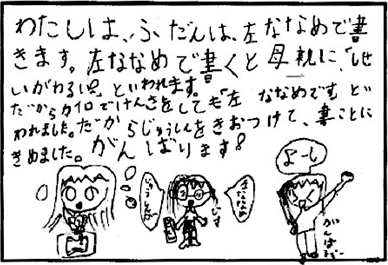 わたしは、ふだんは、左ななめで書
きます。左ななめで書くと母親に、「しせ
いがわるい」といわれます。
だからカイロでけんさをしても「左ななめです」とい
われました。だからじゅうしんをきおつけて、書ことに
きめました。がんばります!
よーし
がんばるぞ